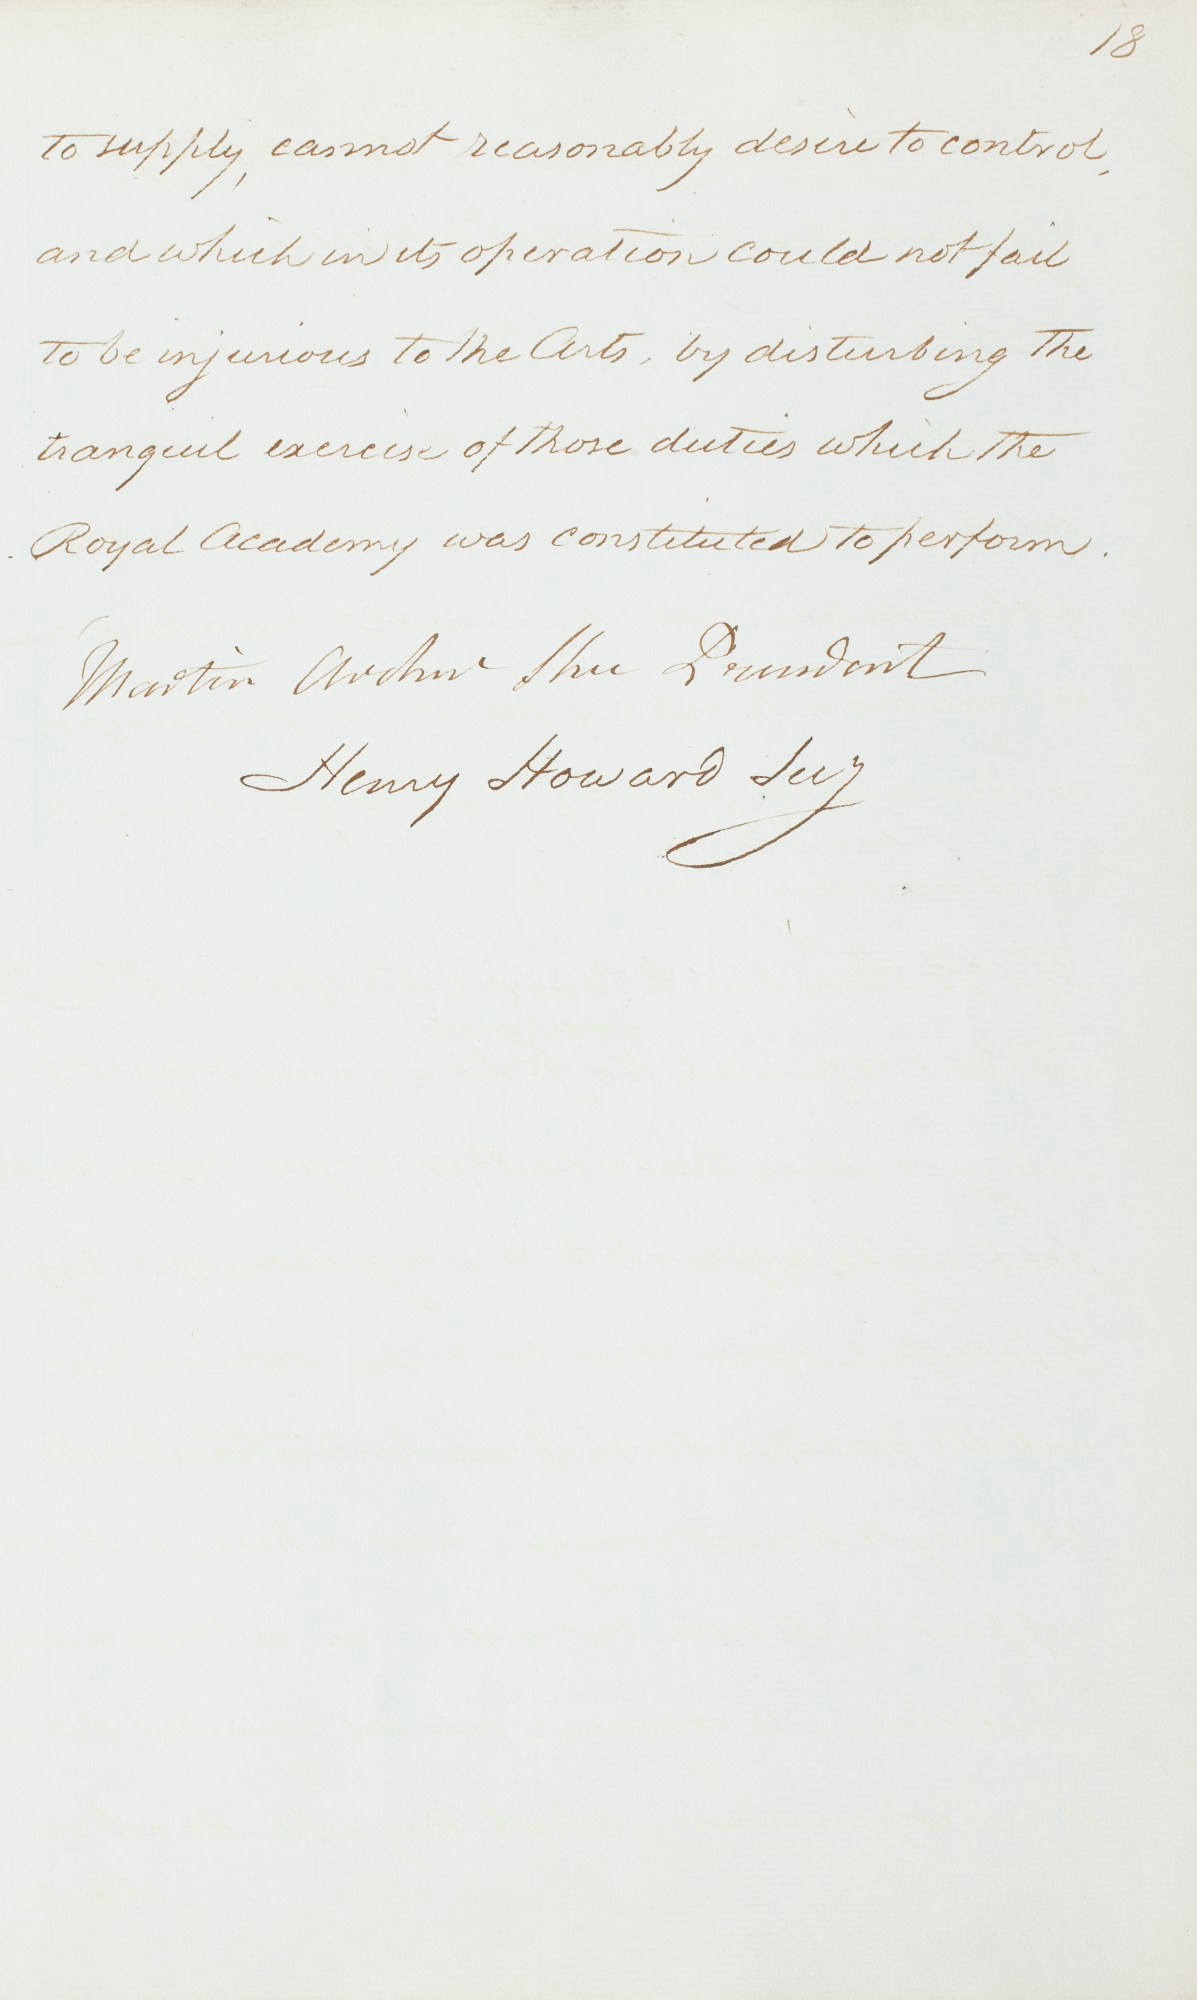 18
to supply, cannot reasonably desire to control,
and which in its operation could not fail
to be injurious to the Arts, by disturbing the
tranquil exercise of those duties which the
Royal Academy was constituted to perform.
Martin Archer Shee President
Henry Howard Secy